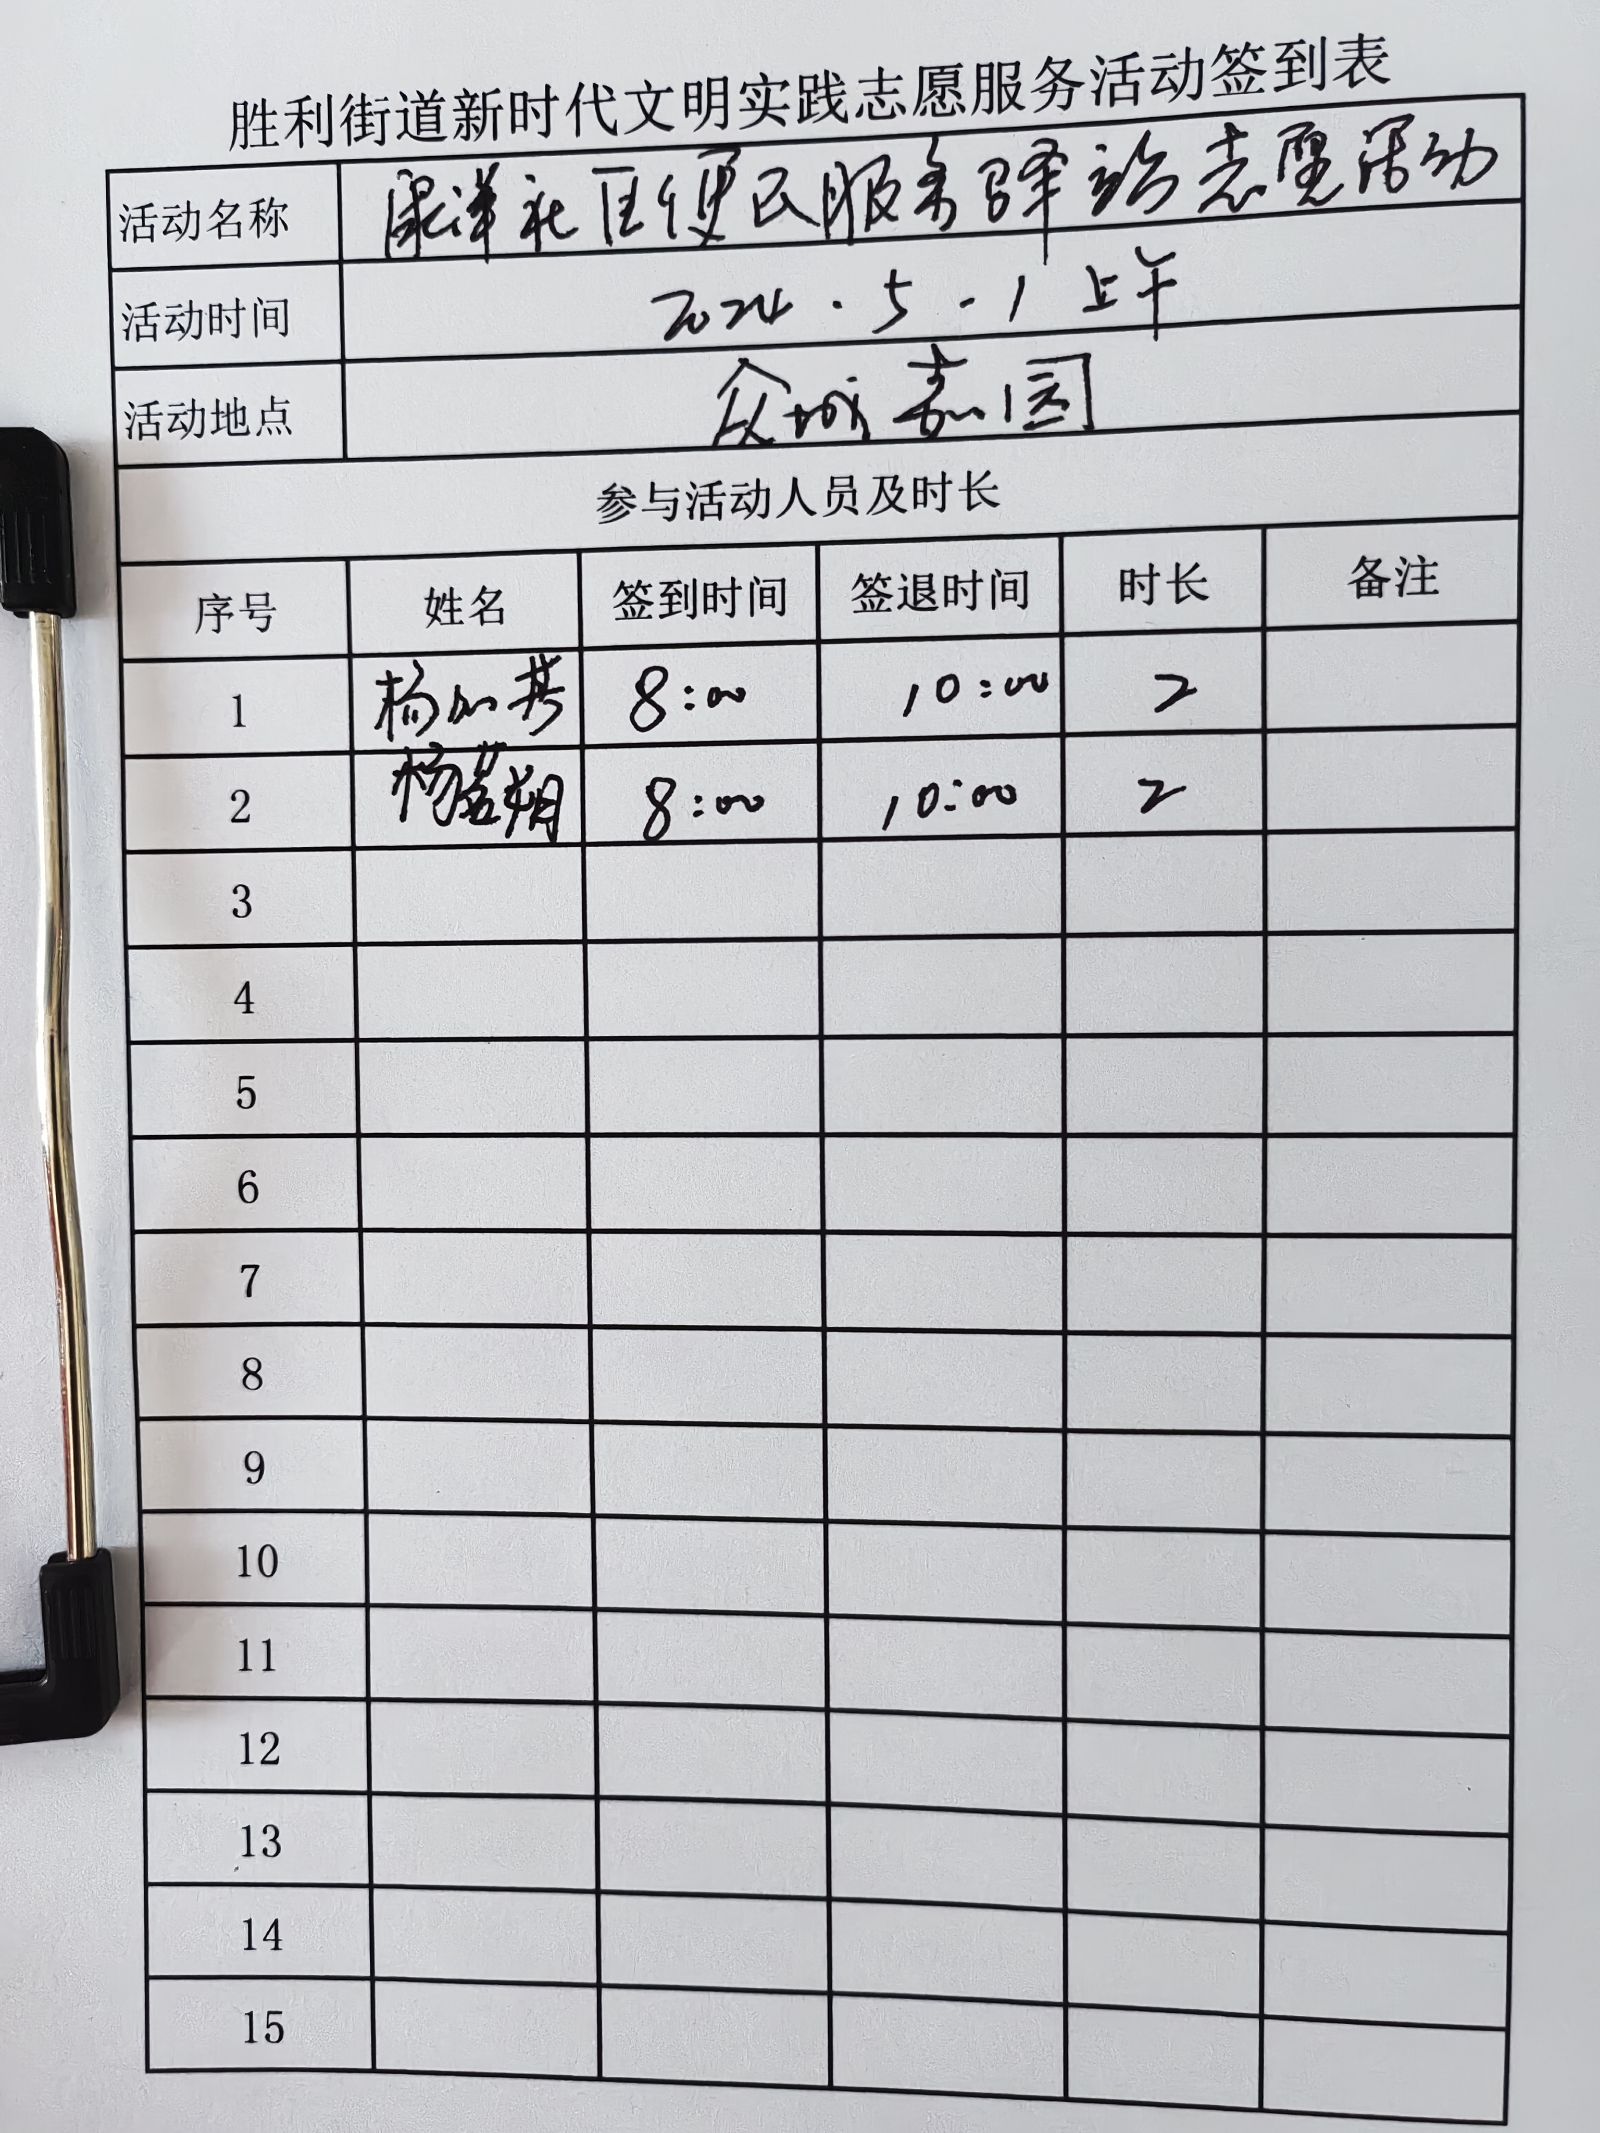 胜利街道新时代文明实践志愿服务活动签到表
活动名称 康洋社区便民服务驿站志愿活动
活动时间 2024.5.1 上午
活动地点 众城嘉园
参与活动人员及时长
序号 姓名 签到时间 签退时间 时长 备注
1 杨 8:00 10:00 2
2 杨若朔 8:00 10:00 2
3
4
5
6
7
8
9
10
11
12
13
14
15